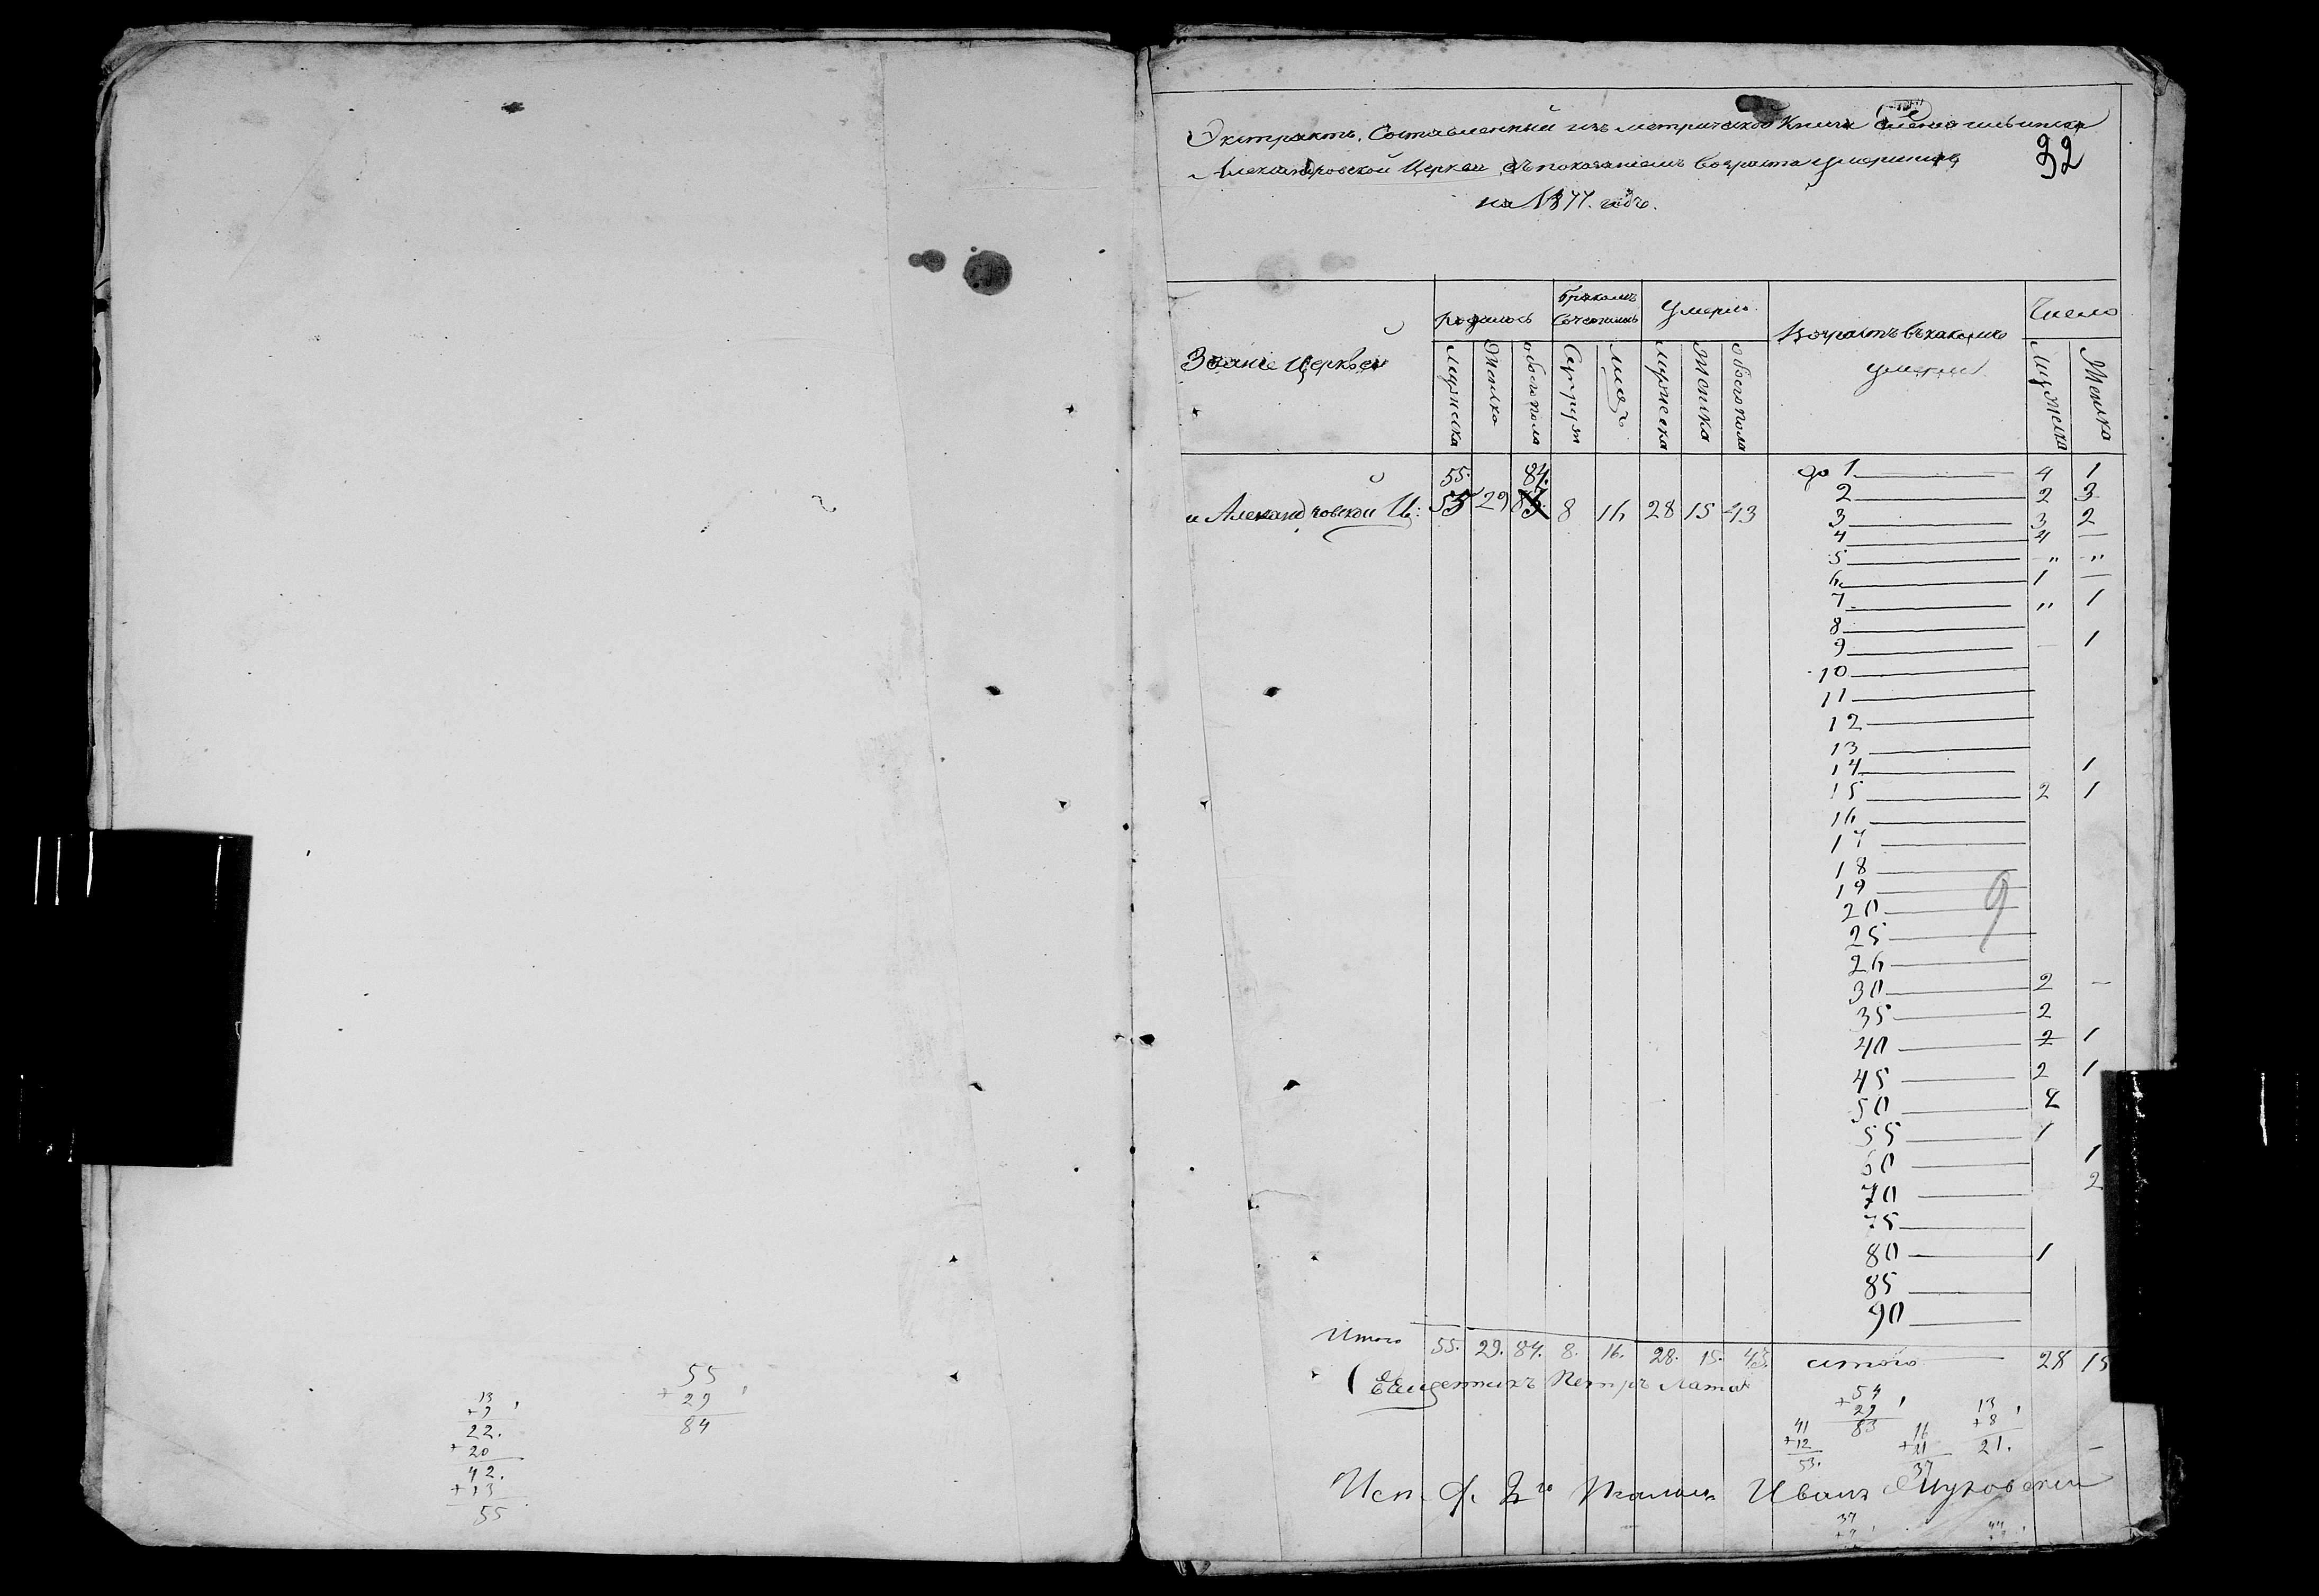 55
+ 29
84
13
+ 9
22.
+ 20
42.
+ 13
55
Экстрактъ, Составленный изъ метрической Книги
32
Александровской Церкви съ показаніемъ возраста умершихъ
на 1877. годъ.
Званіе Церквей
родилось
Бракомъ Сочетались
Умерло.
Возрастъ въ какомъ умерли
Число
Мужеска
Женска
обоего пола
Супруж
Лицъ
мужеска
Женска
обоего пола
Мужеска
Женска
55. 84.
Александровской Ц: 55 29 83 8 16 28 15 43
до 1 4 1
2 2 3
3 3 2
4 4 —
5 " "
6 1 —
7 " 1
8
9 — 1
10
11
12
13
14 1
15 2 1
16
17
18
19
20
9
25
26
30 2 —
35 2
40 2 1
45 2 1
50 2
55 1
60 1
70 2
75
80 1
85
90
Итого 55. 29. 84. 8. 16. 28. 15. 43. итого 28 15
Священникъ Петръ
54
+ 29
83
41
+ 12
53.
16
+ 21
37
13
+ 8
21.
Исп. д. Псалом Иванъ
37